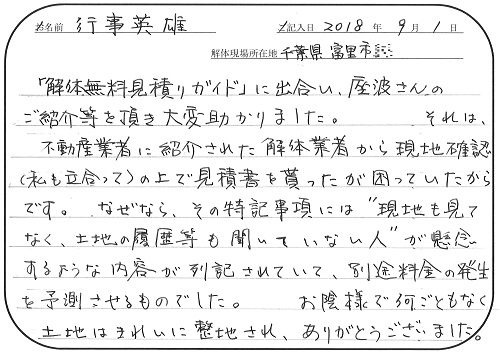 お名前 行事英雄 ご記入日 2018 年 9 月 1 日
解体現場所在地 千葉県富里市
「解体無料見積りガイド」に出合い、座波さんの
ご紹介等を頂き大変助かりました。 それは、
不動産業者に紹介された解体業者から現地確認
(私も立合って)の上で見積書を貰ったが困っていたから
です。なぜなら、その特記事項には"現地も見て
なく、土地の履歴等も聞いていない人"が懸念
するような内容が列記されていて、別途料金の発生
を予測させるものでした。 お陰様で何ごともなく
土地はきれいに整地され、ありがとうございました。